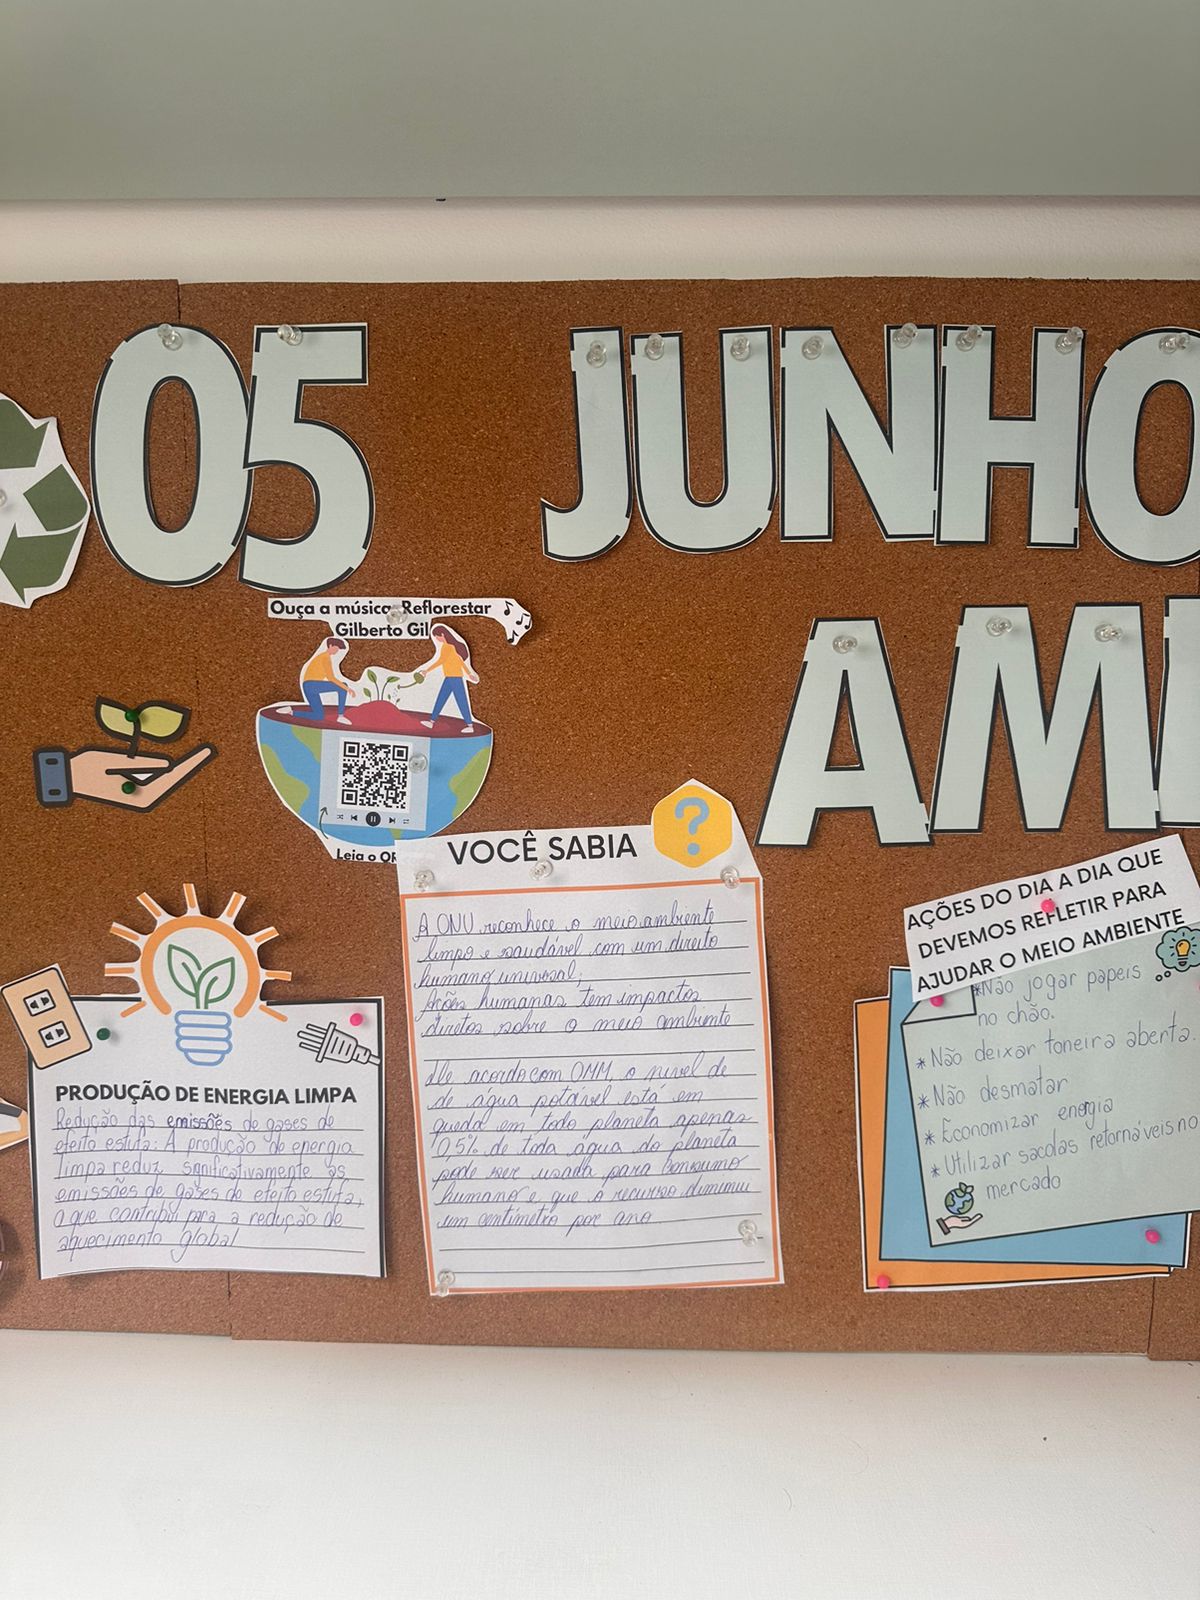 05 JUNHO
AM
Ouça a música: Reflorestar
Gilberto Gil
Leia o QR
VOCÊ SABIA
?
A ONU reconhece o meio ambiente
limpo e saudável com um direito
humano universal;
Ações humanas tem impactos
diretos sobre o meio ambiente
De acordo com OMM o nível de
de água potável está em
queda em todo planeta apenas
0,5% de toda água do planeta
pode ser usada para consumo
humano e que o recurso diminui
um centímetro por ano
PRODUÇÃO DE ENERGIA LIMPA
Redução das emissões de gases de
efeito estufa: A produção de energia
limpa reduz significativamente as
emissões de gases de efeito estufa,
o que contribui para a redução do
aquecimento global
AÇÕES DO DIA A DIA QUE
DEVEMOS REFLETIR PARA
AJUDAR O MEIO AMBIENTE
*Não jogar papeis
no chão.
*Não deixar toneira aberta.
*Não desmatar
*Economizar energia
*Utilizar sacolas retornáveis no
mercado